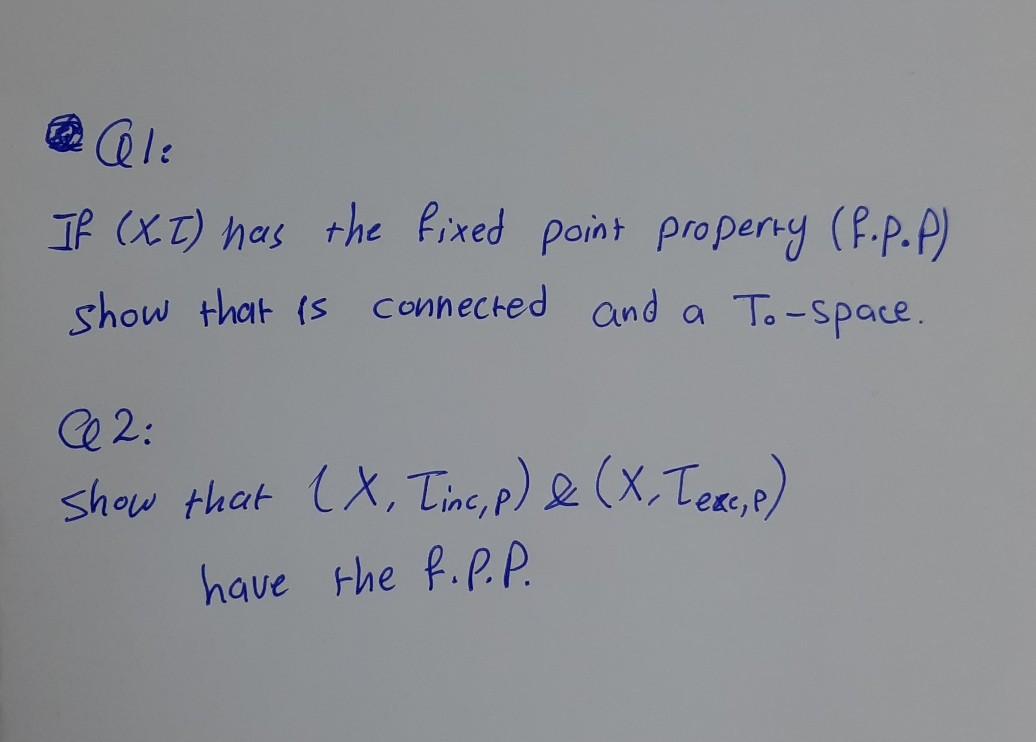 Q1:
If (X T) has the fixed point property (f.p.p)
show that is connected and a T₀-space.
Q2:
show that (X, τinc,p) & (X, τexc,p)
have the f.p.p.